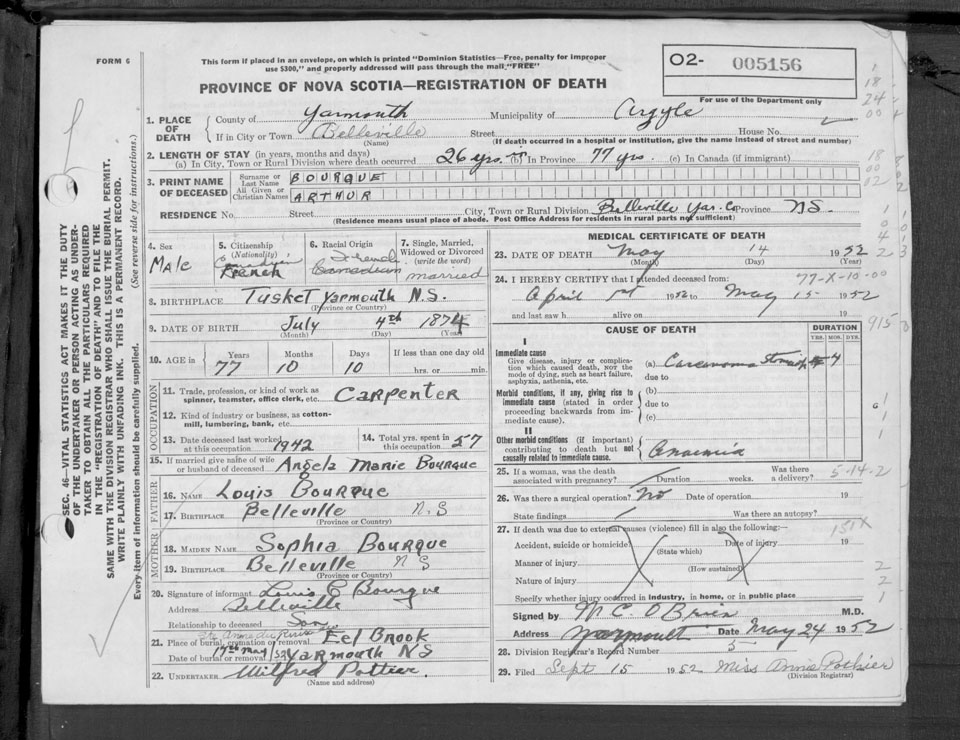 FORM 6
This form if placed in an envelope, on which is printed "Dominion Statistics—Free, penalty for improper
use $300," and properly addressed will pass through the mail "FREE"
O2- 005156
PROVINCE OF NOVA SCOTIA—REGISTRATION OF DEATH
For use of the Department only
1. PLACE OF DEATH
County of Yarmouth Municipality of Argyle
If in City or Town Belleville Street House No.
(Name) (If death occurred in a hospital or institution, give the name instead of street and number)
2. LENGTH OF STAY (in years, months and days)
(a) In City, Town or Rural Division where death occurred 26 yrs. (b) In Province 77 yrs. (c) In Canada (if immigrant)
3. PRINT NAME OF DECEASED
Surname or Last Name BOURQUE
All Given or Christian Names ARTHUR
RESIDENCE No. Street City, Town or Rural Division Belleville Yar. Co Province NS.
(Residence means usual place of abode. Post Office Address for residents in rural parts not sufficient)
4. Sex Male
5. Citizenship (Nationality) Canadian French
6. Racial Origin French Canadian
7. Single, Married, Widowed or Divorced (write the word) married
8. BIRTHPLACE Tusket Yarmouth N.S.
(Province or Country)
9. DATE OF BIRTH July 4th 1874
(Month) (Day) (Year)
10. AGE in Years Months Days If less than one day old
77 10 10 hrs. or min.
OCCUPATION
11. Trade, profession, or kind of work as spinner, teamster, office clerk, etc. Carpenter
12. Kind of industry or business, as cotton-mill, lumbering, bank, etc.
13. Date deceased last worked at this occupation 1942
14. Total yrs. spent in this occupation 57
15. If married give name of wife or husband of deceased Angela Marie Bourque
FATHER
16. NAME Louis Bourque
17. BIRTHPLACE Belleville N.S
(Province or Country)
MOTHER
18. MAIDEN NAME Sophia Bourque
19. BIRTHPLACE Belleville N S
(Province or Country)
20. Signature of informant Louis E Bourque
Address Belleville
Relationship to deceased Son
21. Place of burial, cremation or removal Eel Brook
Date of burial or removal 17th May /52 Yarmouth NS
22. UNDERTAKER Wilfred Pottier
(Name and address)
MEDICAL CERTIFICATE OF DEATH
23. DATE OF DEATH May 14 1952
(Month) (Day) (Year)
24. I HEREBY CERTIFY that I attended deceased from: 77-X-10-00
April 1st 1952 to May 15 1952
and last saw h alive on 19
915
CAUSE OF DEATH DURATION
YRS. MOS. DYS.
I
Immediate cause
Give disease, injury or complication which caused death, NOT the mode of dying, such as heart failure, asphyxia, asthenia, etc.
(a) Carcinoma Stomach 4
due to
Morbid conditions, if any, giving rise to immediate cause (stated in order proceeding backwards from immediate cause).
(b)
due to
(c)
II
Other morbid conditions (if important) contributing to death but not causally related to immediate cause.
Anaemia
25. If a woman, was the death associated with pregnancy? Duration weeks. Was there a delivery? 5-14-2
26. Was there a surgical operation? No Date of operation 19
State findings Was there an autopsy?
27. If death was due to external causes (violence) fill in also the following—
151X
Accident, suicide or homicide? Date of injury 19
(State which)
Manner of injury
(How sustained)
Nature of injury
Specify whether injury occurred in industry, in home, or in public place
Signed by M C. O'Brien M.D.
Address Yarmouth Date May 24 1952
28. Division Registrar's Record Number 5
29. Filed Sept 15 1952 Miss Annie Pothier
(Division Registrar)
SEC. 46—VITAL STATISTICS ACT MAKES IT THE DUTY
OF THE UNDERTAKER OR PERSON ACTING AS UNDER-
TAKER TO OBTAIN ALL THE PARTICULARS REQUIRED
IN THE "REGISTRATION OF DEATH" AND TO FILE THE
SAME WITH THE DIVISION REGISTRAR WHO SHALL ISSUE THE BURIAL PERMIT.
WRITE PLAINLY WITH UNFADING INK. THIS IS A PERMANENT RECORD.
Every item of information should be carefully supplied. (See reverse side for instructions.)